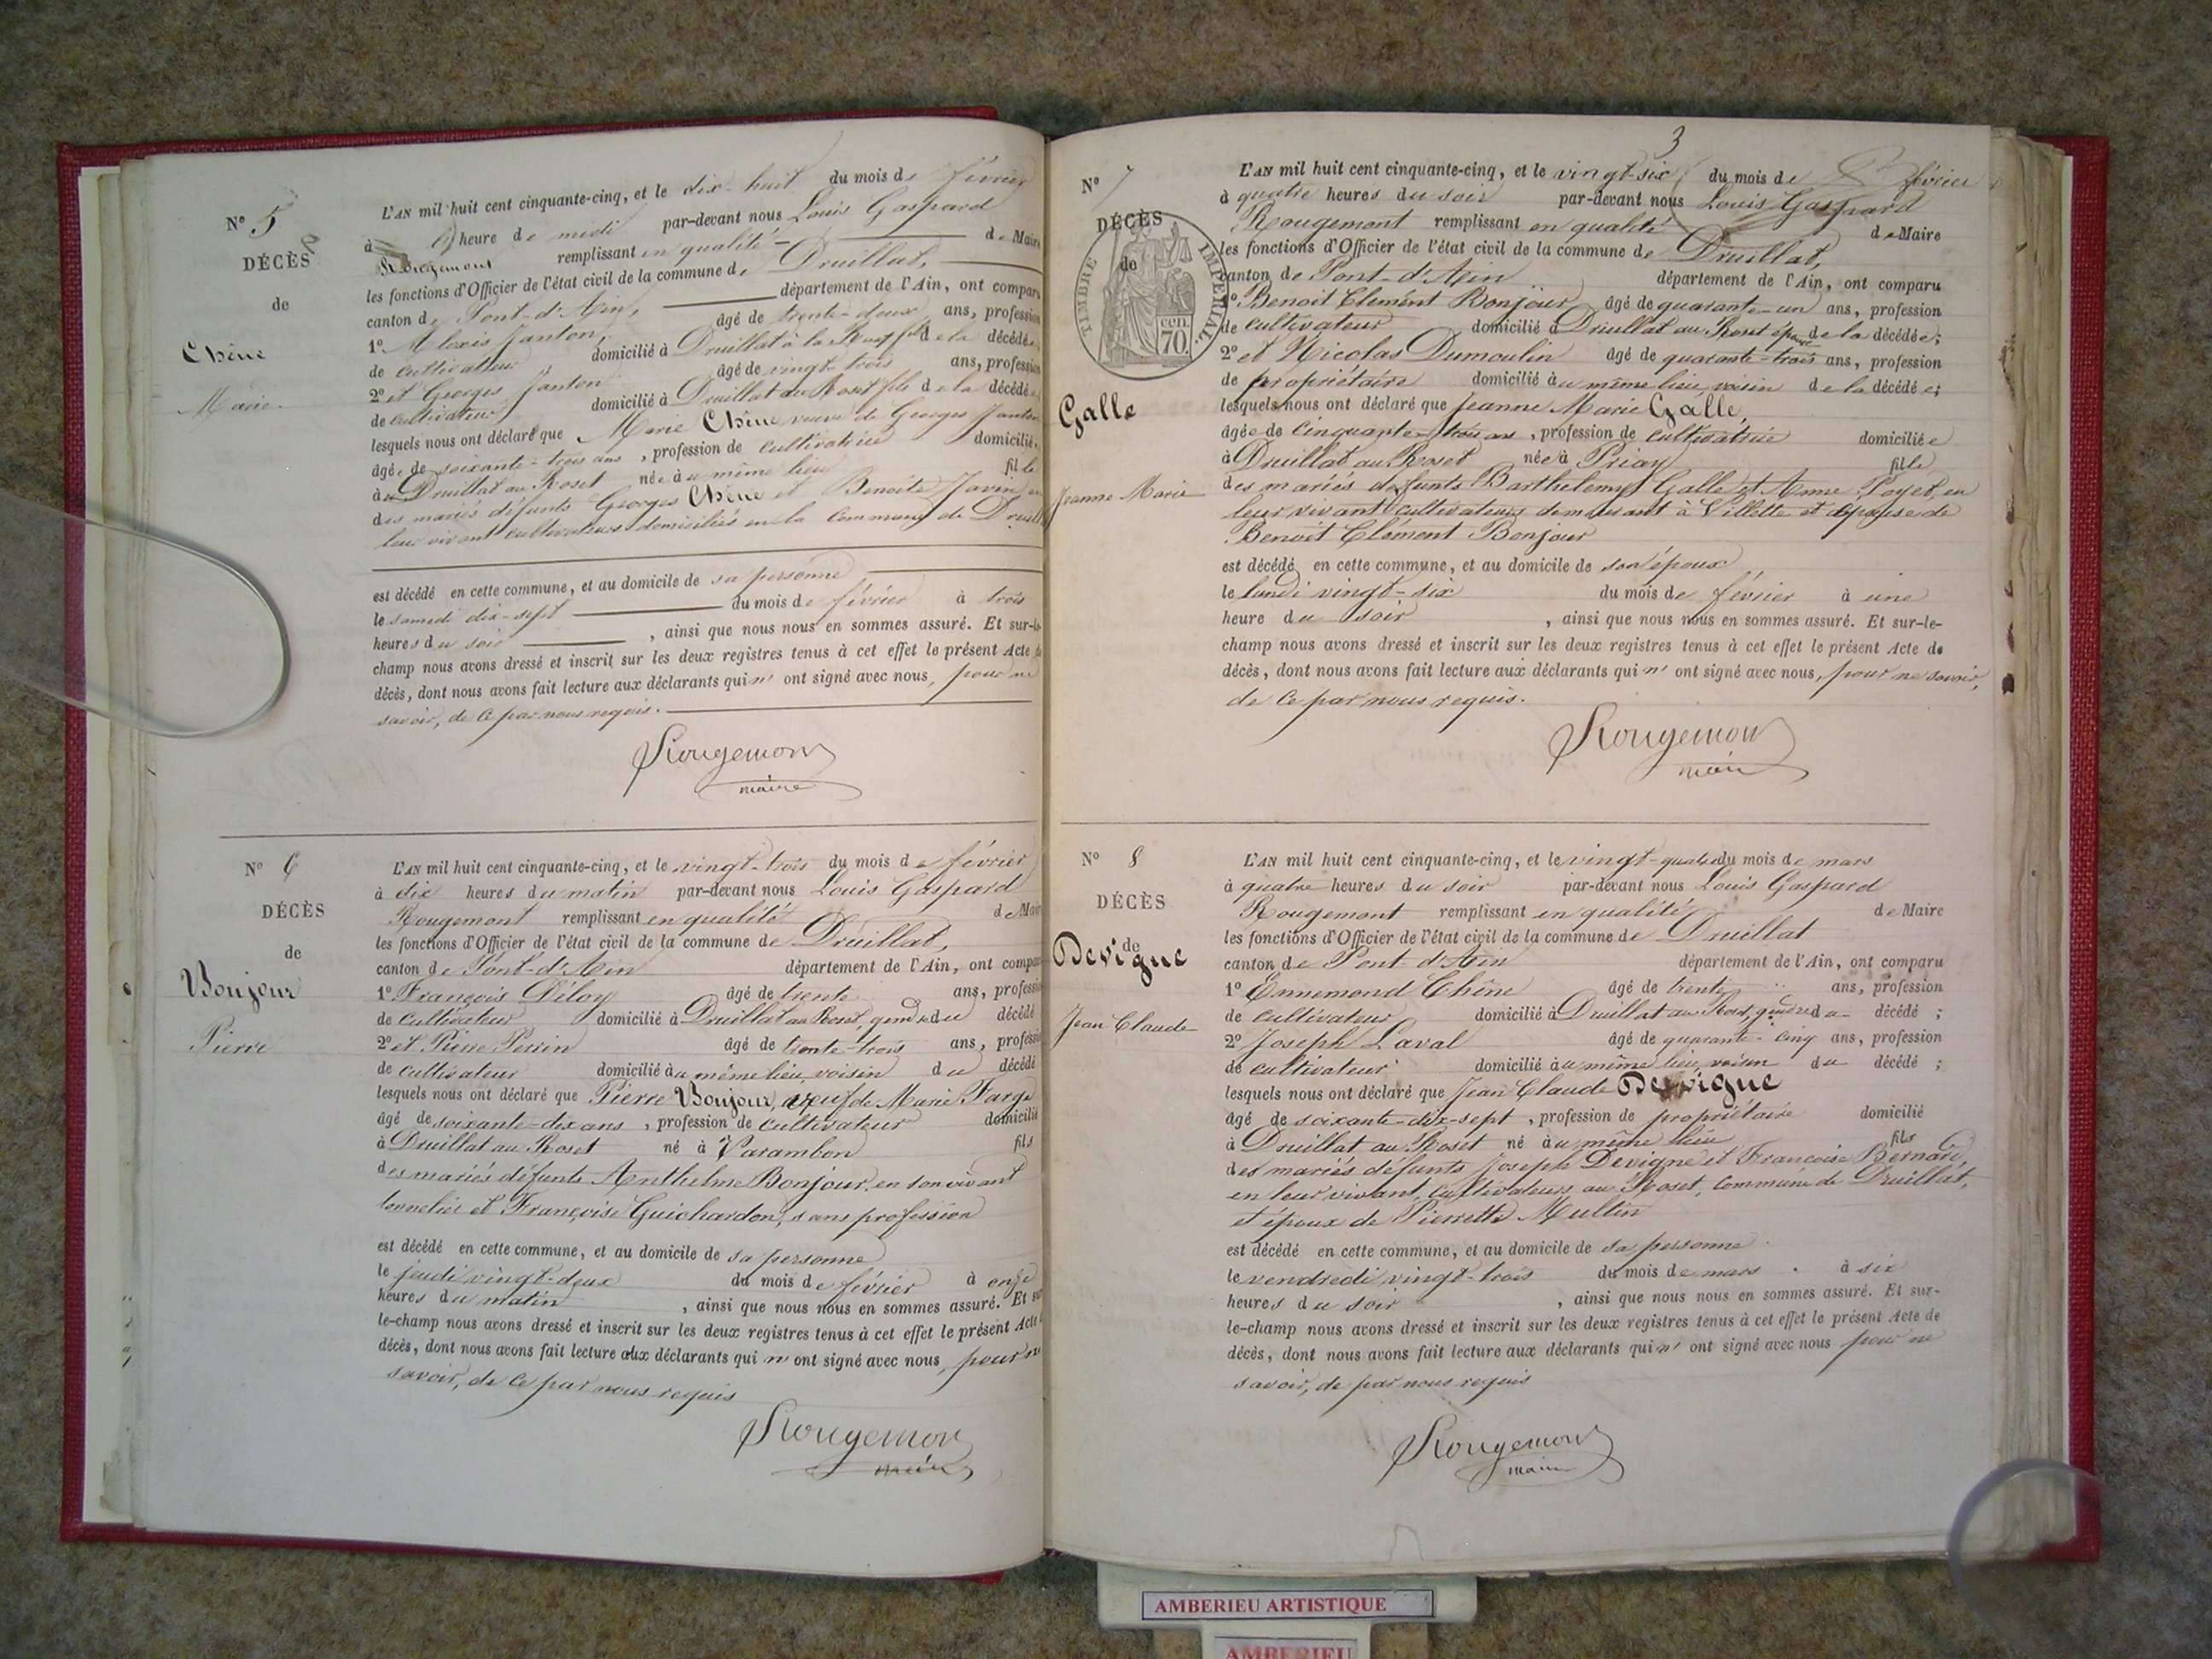 N° 5
DÉCÈS
de
Chêne
Marie
L'AN mil huit cent cinquante-cinq, et le dix-huit du mois de février
à heure de midi par-devant nous Louis Gaspard
Rougemont remplissant en qualité de Maire
les fonctions d'Officier de l'état civil de la commune de Druillat,
canton de Pont-d'Ain, département de l'Ain, ont compar
1° Alexis Janton, âgé de trente-deux ans, profession
de cultivateur domicilié à Druillat à la fils de la décédée
2° et Georges Janton âgé de vingt trois ans, profession
de cultivateur domicilié à Druillat au Roset fils de la décédée
lesquels nous ont déclaré que Marie Chêne veuve de Georges Janton
âgée de soixante-trois ans, profession de cultivatrice domiciliée
à Druillat au Roset née au même lieu fille
des mariés défunts Georges Chêne et Benoîte Javin en
leur vivant cultivateurs domiciliés en la commune de Druill
est décédé en cette commune, et au domicile de sa personne
le samedi dix-sept du mois de février à trois
heures du soir, ainsi que nous nous en sommes assuré. Et sur-le-
champ nous avons dressé et inscrit sur les deux registres tenus à cet effet le présent Acte de
décès, dont nous avons fait lecture aux déclarants qui n'ont signé avec nous, pour ne
savoir, de ce par nous requis.
Rougemont
maire
N° 6
DÉCÈS
de
Bonjour
Pierre
L'AN mil huit cent cinquante-cinq, et le vingt-trois du mois de février
à dix heures du matin par-devant nous Louis Gaspard
Rougemont remplissant en qualité de Mair
les fonctions d'Officier de l'état civil de la commune de Druillat,
canton de Pont-d'Ain département de l'Ain, ont compar
1° François Péloy âgé de trente ans, professi
de cultivateur domicilié à Druillat au Roset, gendre du décédé
2° et Pierre Perrin âgé de trente-trois ans, professi
de cultivateur domicilié au même lieu, voisin du décédé
lesquels nous ont déclaré que Pierre Bonjour, veuf de Marie Farge
âgé de soixante-dix ans, profession de cultivateur domicilié
à Druillat au Roset né à Varambon fils
des mariés défunts Anthelme Bonjour, en son vivant
tonnelier et Françoise Guichardon, sans profession
est décédé en cette commune, et au domicile de sa personne
le jeudi vingt-deux du mois de février à onze
heures du matin, ainsi que nous nous en sommes assuré. Et sur
le-champ nous avons dressé et inscrit sur les deux registres tenus à cet effet le présent Acte
décès, dont nous avons fait lecture aux déclarants qui n'ont signé avec nous, pour ne
savoir, de ce par nous requis
Rougemont
maire
3
N° 7
DÉCÈS
de
TIMBRE IMPÉRIAL
70 cen.
Galle
Jeanne Marie
L'AN mil huit cent cinquante-cinq, et le vingt-six du mois de février
à quatre heures du soir par-devant nous Louis Gaspard
Rougemont remplissant en qualité de Maire
les fonctions d'Officier de l'état civil de la commune de Druillat,
canton de Pont-d'Ain département de l'Ain, ont comparu
1° Benoit Clément Bonjour, âgé de quarante-un ans, profession
de cultivateur domicilié à Druillat au Roset époux de la décédée;
2° et Nicolas Dumoulin âgé de quarante-trois ans, profession
de propriétaire domicilié au même lieu, voisin de la décédée;
lesquels nous ont déclaré que Jeanne Marie Galle,
âgée de cinquante-trois ans, profession de cultivatrice domiciliée
à Druillat au Roset née à Priay fille
des mariés défunts Barthelemy Galle et Anne Poyet, en
leur vivant cultivateurs demeurant à Villette et épouse de
Benoit Clément Bonjour
est décédé en cette commune, et au domicile de son époux
le lundi vingt-six du mois de février à une
heure du soir, ainsi que nous nous en sommes assuré. Et sur-le-
champ nous avons dressé et inscrit sur les deux registres tenus à cet effet le présent Acte de
décès, dont nous avons fait lecture aux déclarants qui n'ont signé avec nous, pour ne savoir,
de ce par nous requis.
Rougemont
maire
N° 8
DÉCÈS
de
Devigne
Jean Claude
L'AN mil huit cent cinquante-cinq, et le vingt-quatre du mois de mars
à quatre heures du soir par-devant nous Louis Gaspard
Rougemont remplissant en qualité de Maire
les fonctions d'Officier de l'état civil de la commune de Druillat
canton de Pont-d'Ain département de l'Ain, ont comparu
1° Ennemond Chêne âgé de trente ans, profession
de cultivateur domicilié à Druillat au Roset, gendre du décédé;
2° Joseph Laval âgé de quarante-cinq ans, profession
de cultivateur domicilié au même lieu, voisin du décédé;
lesquels nous ont déclaré que Jean Claude Devigne
âgé de soixante-dix-sept, profession de propriétaire domicilié
à Druillat au Roset né au même lieu fils
des mariés défunts Joseph Devigne et Francoise Bernard,
en leur vivant, cultivateurs au Roset, commune de Druillat,
et époux de Pierrette Multin
est décédé en cette commune, et au domicile de sa personne
le vendredi vingt-trois du mois de mars à six
heures du soir, ainsi que nous nous en sommes assuré. Et sur-
le-champ nous avons dressé et inscrit sur les deux registres tenus à cet effet le présent Acte de
décès, dont nous avons fait lecture aux déclarants qui n'ont signé avec nous pour ne
savoir, de par nous requis
Rougemont
maire
AMBERIEU ARTISTIQUE
AMBERIEU